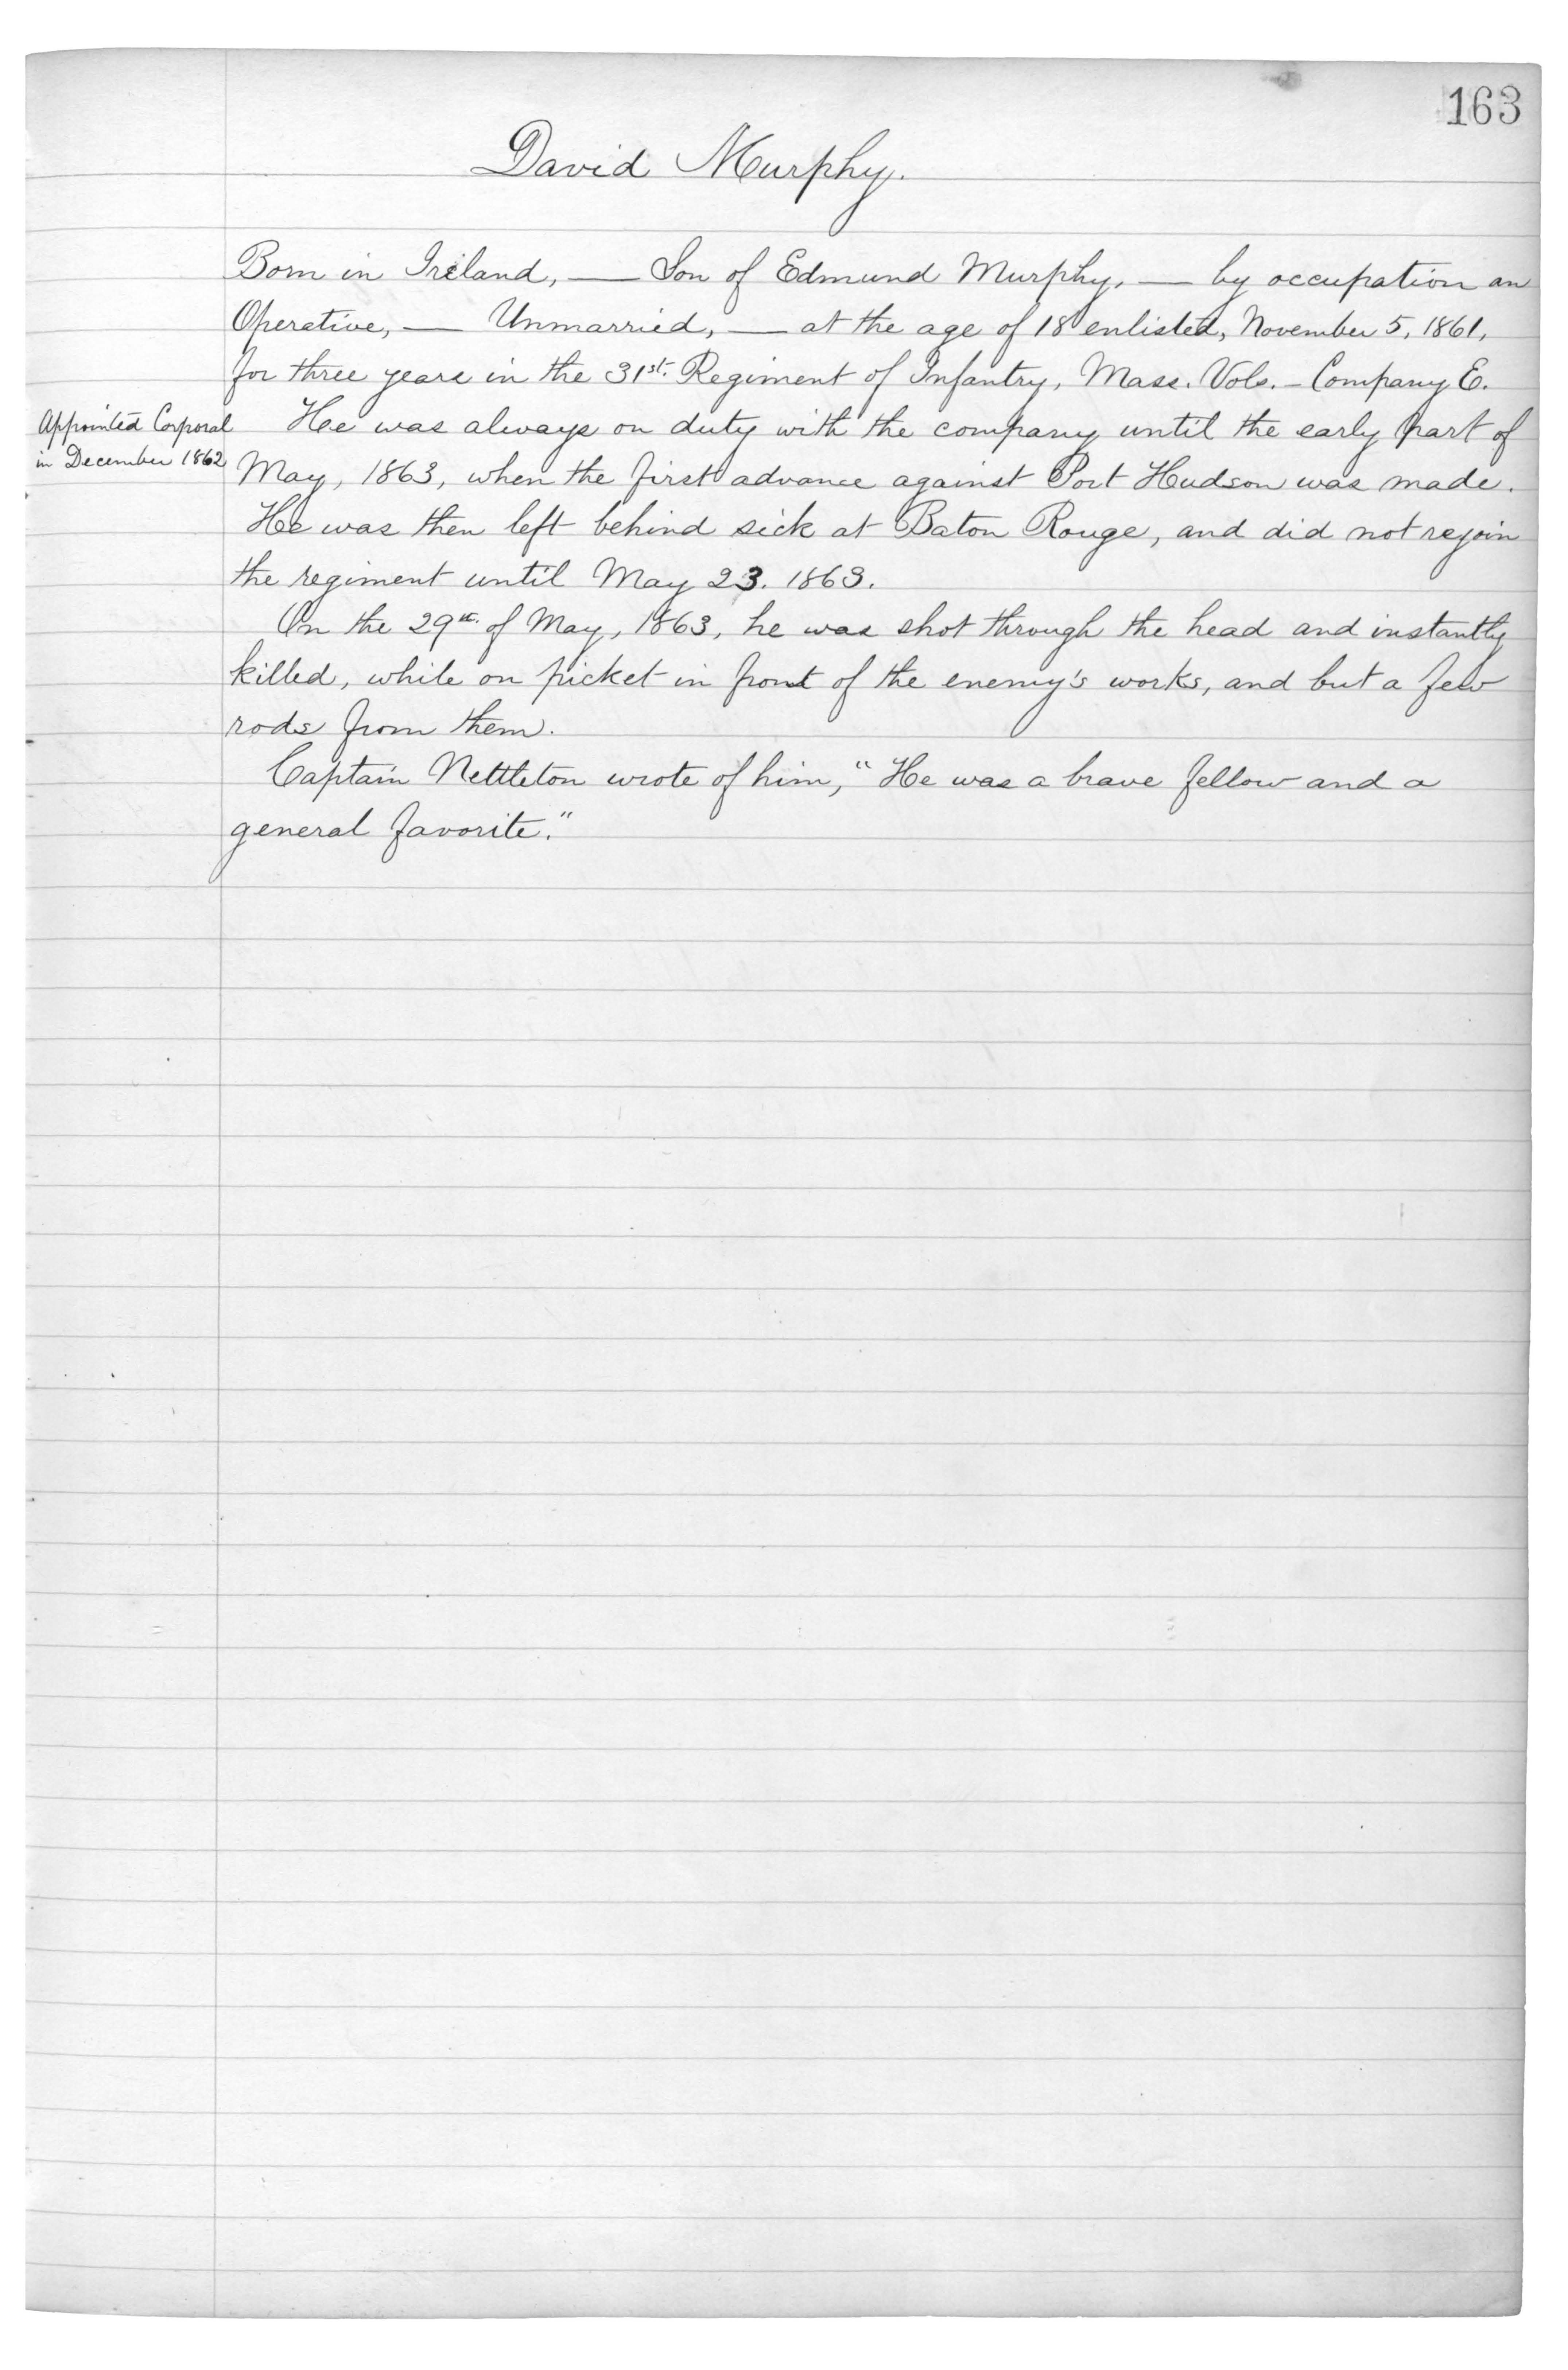 163
David Murphy.
Born in Ireland, — Son of Edmund Murphy, — by occupation an
Operative, — Unmarried, — at the age of 18 enlisted, November 5, 1861,
for three years in the 31st. Regiment of Infantry, Mass. Vols. – Company E.
Appointed Corporal
in December 1862
He was always on duty with the company until the early part of
May, 1863, when the first advance against Port Hudson was made.
He was then left behind sick at Baton Rouge, and did not rejoin
the regiment until May 23. 1863.
On the 29th. of May, 1863, he was shot through the head and instantly
killed, while on picket in front of the enemy's works, and but a few
rods from them.
Captain Nettleton wrote of him, "He was a brave fellow and a
general favorite."